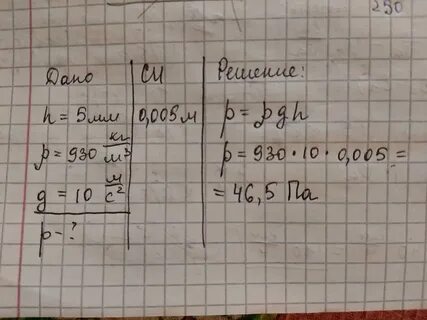 250
Дано
h = 5мм
p = 930 кг/м³
g = 10 м/с²
p - ?
СИ
0,005м
Решение:
p = pgh
p = 930 · 10 · 0,005 =
= 46,5 Па